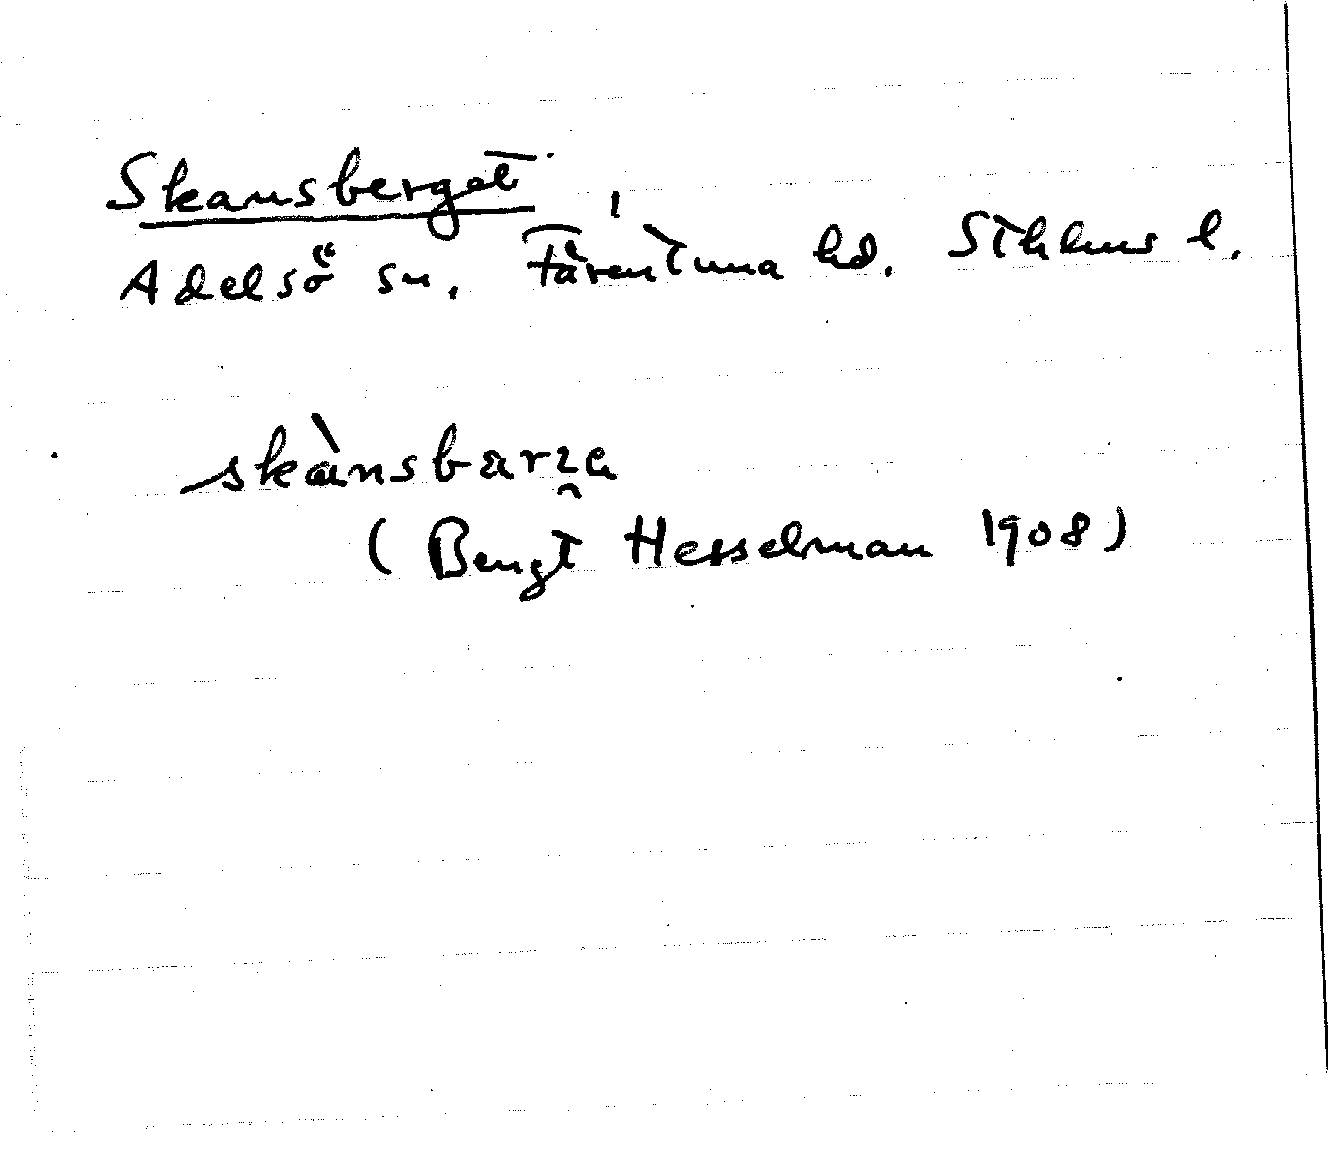 Skansberget
Adelsö sn. Färentuna hd. Sthlms l.
skànsbarʐa
(Bengt Hesselman 1908)